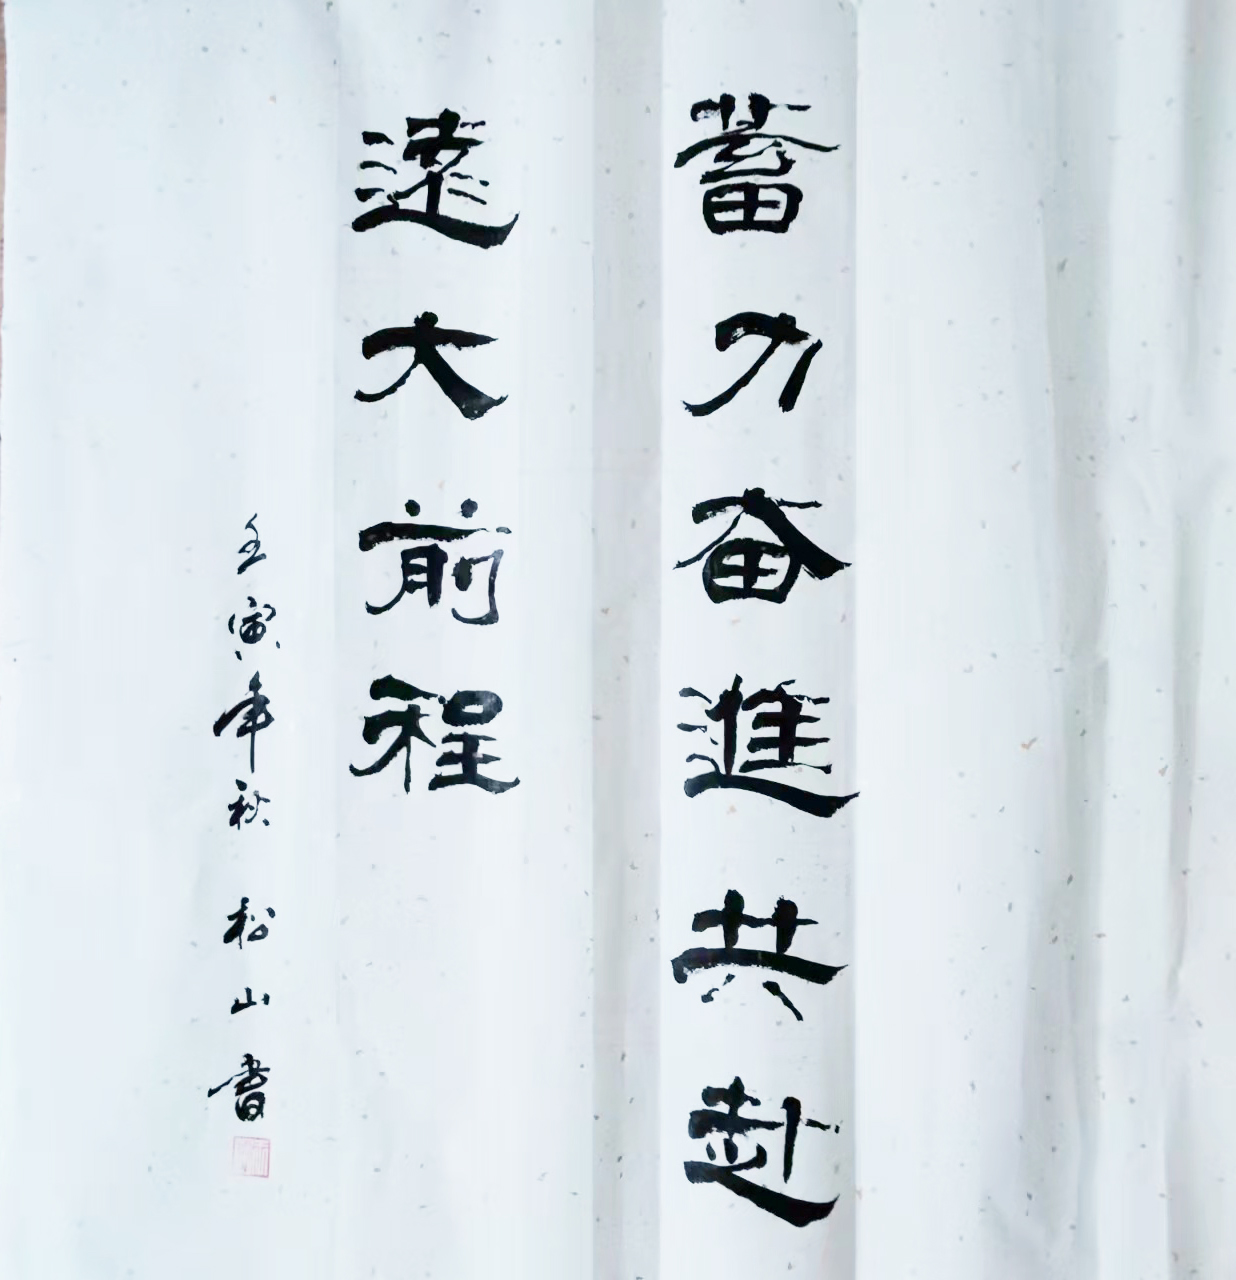 蓄力奋進共赴
遠大前程
壬寅年秋 松山書